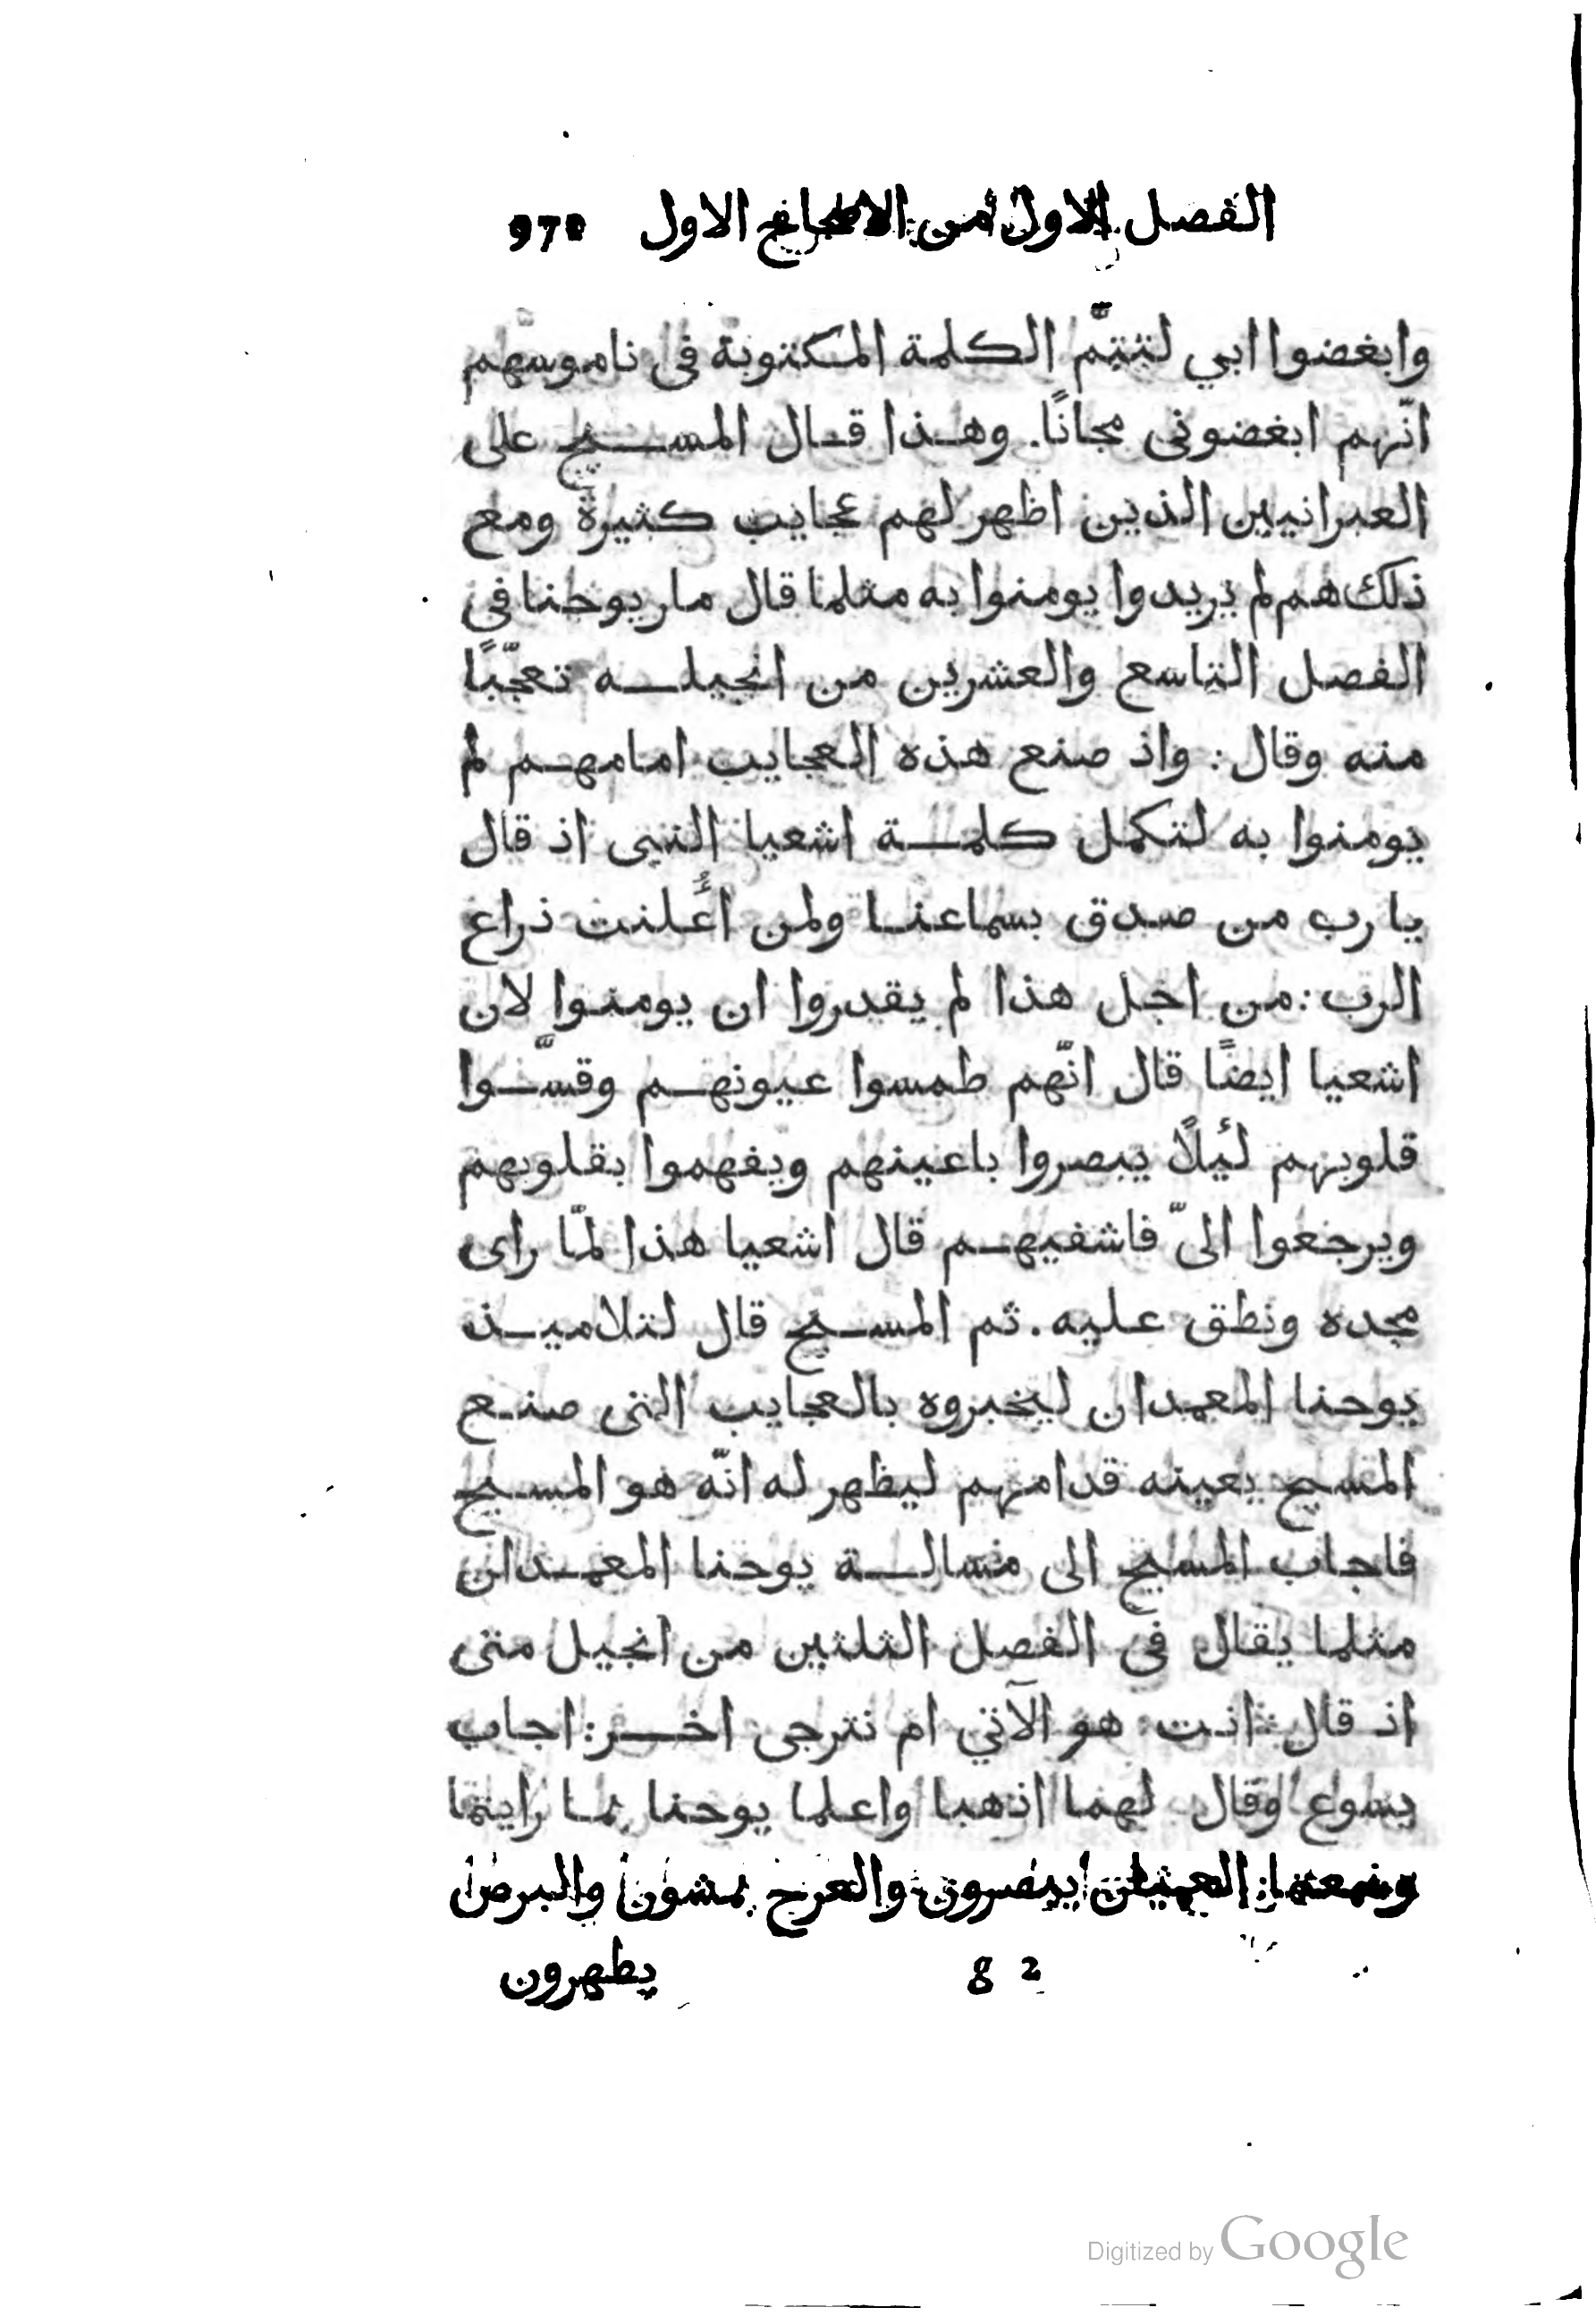 الفصل الاول من الاصحاح الاول 970
وابغضوا ابي لتتمّ الكلمة المكتوبة فى ناموسهم
انّهم ابغضونى مجانًا. وهذا قال المسيح على
العبرانيين الذين اظهر لهم عجايب كثيرة ومع
ذلك هم لم يريدوا يومنوا به مثلما قال مار يوحنا فى
الفصل التاسع والعشرين من انجيله تعجّبًا
منه وقال: واذ صنع هذه العجايب امامهم لم
يومنوا به لتكمل كلمة اشعيا النبى اذ قال
يا رب من صدق بسماعنا ولمن اُعلنت ذراع
الرب: من اجل هذا لم يقدروا ان يومنوا لان
اشعيا ايضًا قال انّهم طمسوا عيونهم وقسّوا
قلوبهم لئلّا يبصروا باعينهم ويفهموا بقلوبهم
ويرجعوا الىّ فاشفيهم قال اشعيا هذا لمّا راى
مجده ونطق عليه. ثم المسيح قال لتلاميذ
يوحنا المعمدان ليخبروه بالعجايب التى صنع
المسيح بعينه قدامهم ليظهر له انّه هو المسيح
فاجاب المسيح الى مسالة يوحنا المعمدان
مثلما يقال فى الفصل الثلثين من انجيل متى
اذ قال: انت هو الآتي ام نترجى اخر: اجاب
يسوع وقال لهما اذهبا واعلما يوحنا بما رايتما
وسمعتما: العميان يبصرون والعرج يمشون والبرص
8 2 يطهرون
Digitized by Google